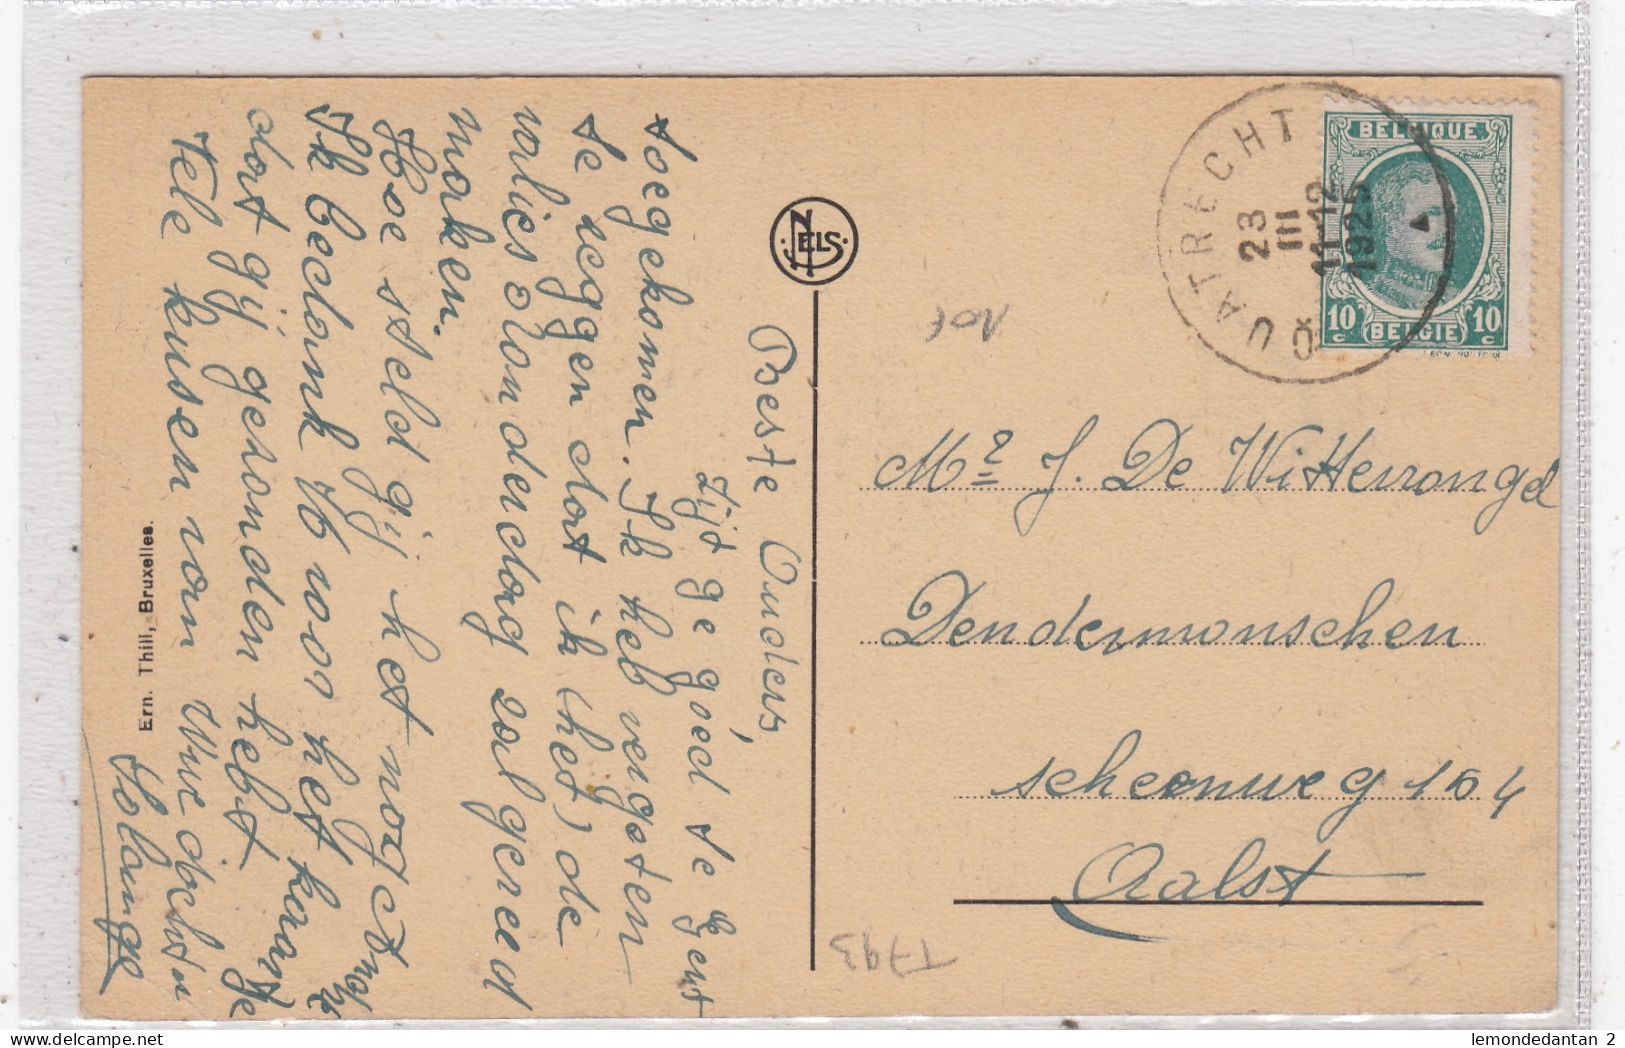 Beste Ouders,
Zijt ge goed te Gent
toegekomen. Ik heb vergeten
te zeggen dat ik (het) de
valies Dondendag zal gereed
maken.
Hoe steld gij het nog
Ik bedank U voor het kaartje
dat gij gezonden hebt.
Vele kusen van Uwe dochter
Solange
Ern. Thill, Bruxelles.
NELS
QUATRECHT
23
III
11-12
1925
BELGIQUE
10 c
BELGIE
10 c
Mr J. De Wittevrongel
Dendermonschen
scheenweg 154
Aalst
T793
lemondedantan 2